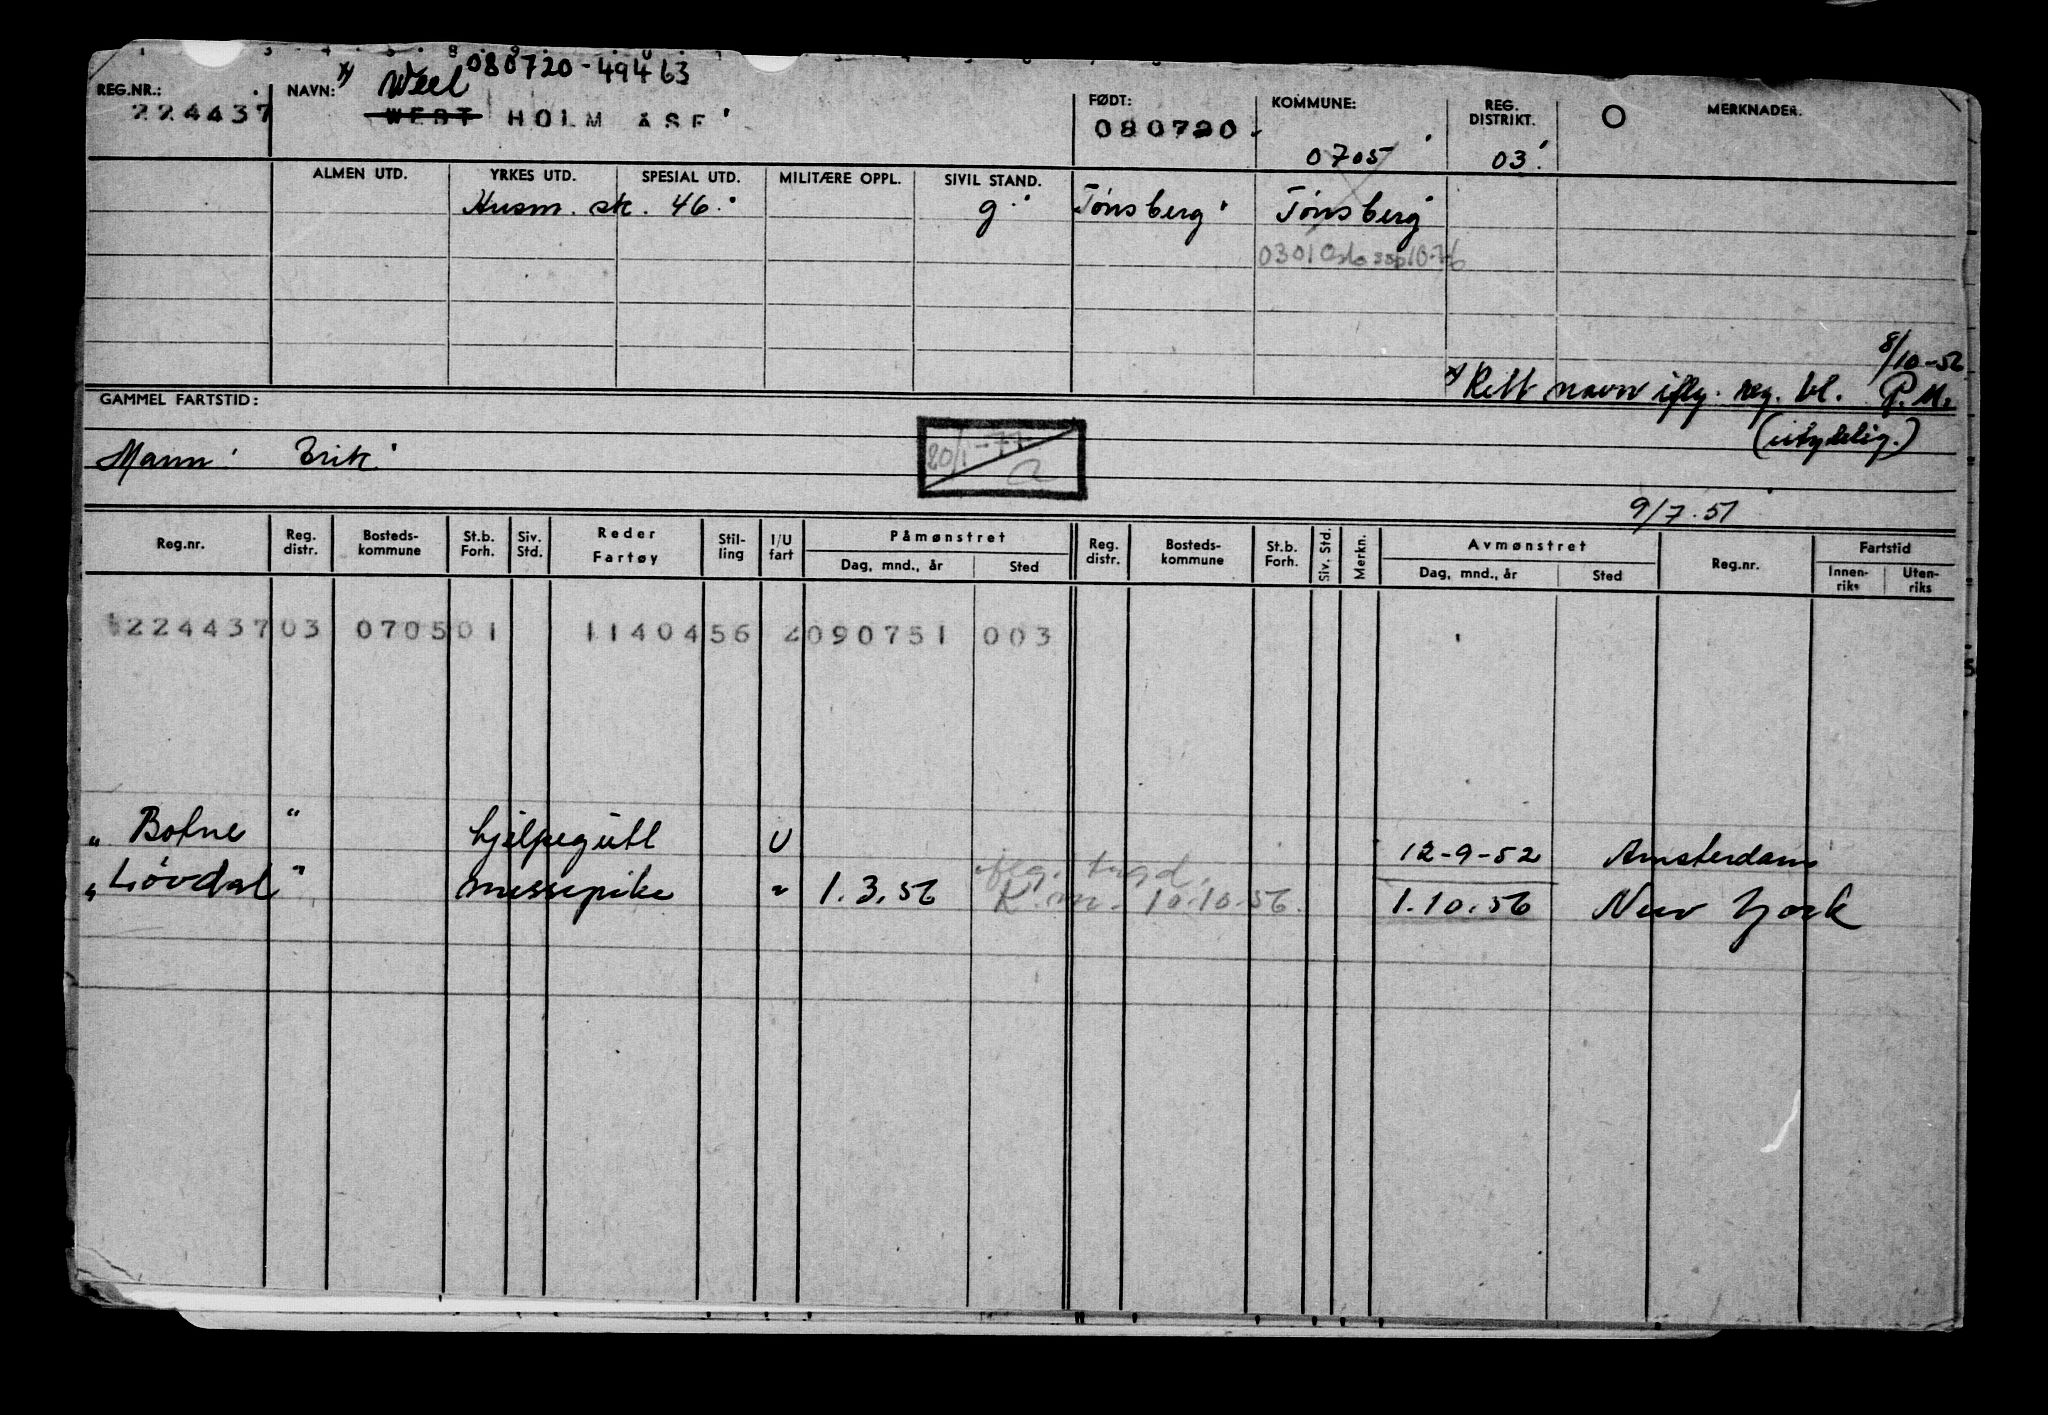 080720-49463
x) Weel
REG.NR.: NAVN: FØDT: KOMMUNE: REG. DISTRIKT. MERKNADER.
224437 WEST HOLM ASE 080720 0705 03
ALMEN UTD. YRKES UTD. SPESIAL UTD. MILITÆRE OPPL. SIVIL STAND.
Husm. sk. 46. g Tønsberg Tønsberg
0301 Oslo 10-76
8/10-56
GAMMEL FARTSTID: x) Rett navn iflg. reg. bl. P.M.
(utydelig.)
Mann: Erik 20/1-77
9/7.51
Reg.nr. Reg. distr. Bosteds- kommune St.b. Forh. Siv. Std. Reder Fartøy Stil- ling I/U fart Påmønstret Reg. distr. Bosteds- kommune St.b. Forh. Siv. Std. Merkn. Avmønstret Reg.nr. Fartstid
Dag, mnd., år Sted Dag, mnd., år Sted Innen- riks Uten- riks
224437 03 0705 01 11404 56 2 090751 003
" Botne " hjelpegutt U 12-9-52 Amsterdam
iflg.
" Løvdal " messepike " 1.3.56 K.m. 10.10.56. 1.10.56 New York